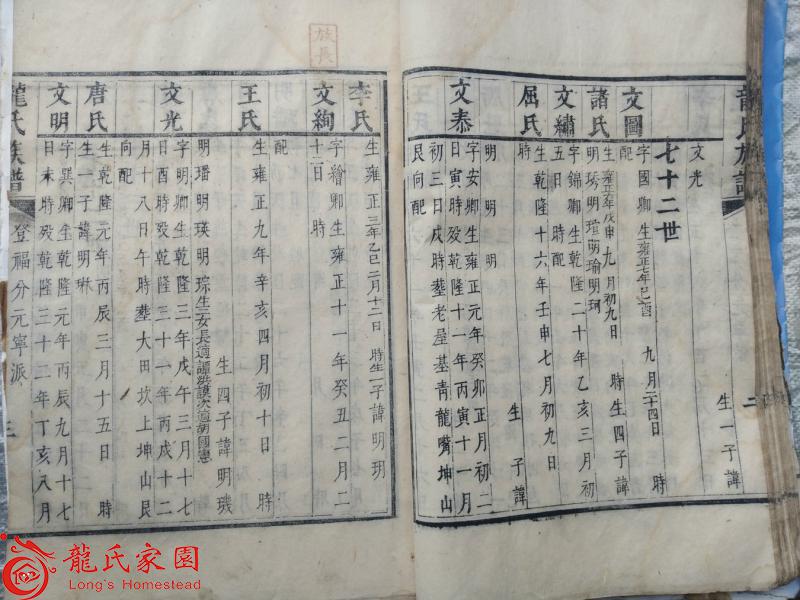 龍氏族譜
二
文光
生一子
七十二世
文圖
字國卿生雍正七年己酉 九月二十四日 時
配
諸氏
生雍正六年戊申九月初九日 時生四子諱
明琇明瑄明瑜明珂
文繡
字錦卿生乾隆二十年乙亥三月初
五日 時配
屈氏
生乾隆十六年壬申七月初九日
時 生 子諱
明 明 明
文泰
字安卿生雍正元年癸卯正月初二
日寅時歿乾隆十一年丙寅十一月
初三日戌時塟老屋基青龍嘴坤山
艮向配
放長
李氏
生雍正三年乙巳二月十二日 時生一子諱明玥
文絢
字繪卿生雍正十一年癸丑二月二
十二日 時
配
王氏
生雍正九年辛亥四月初十日 時
生四子諱明璣
明璠明瑛明琮生二女長適譚 次適胡國憲
文光
字明卿生乾隆三年戊午三月十七
日酉時歿乾隆三十一年丙戌十二
月十八日午時塟大田坎上坤山艮
向配
唐氏
生乾隆元年丙辰三月十五日 時
生一子諱明琳
文明
字巽卿生乾隆元年丙辰九月十七
日未時歿乾隆三十二年丁亥八月
龍氏族譜
登福分元寧派
三
龍氏家園
Long's Homestead